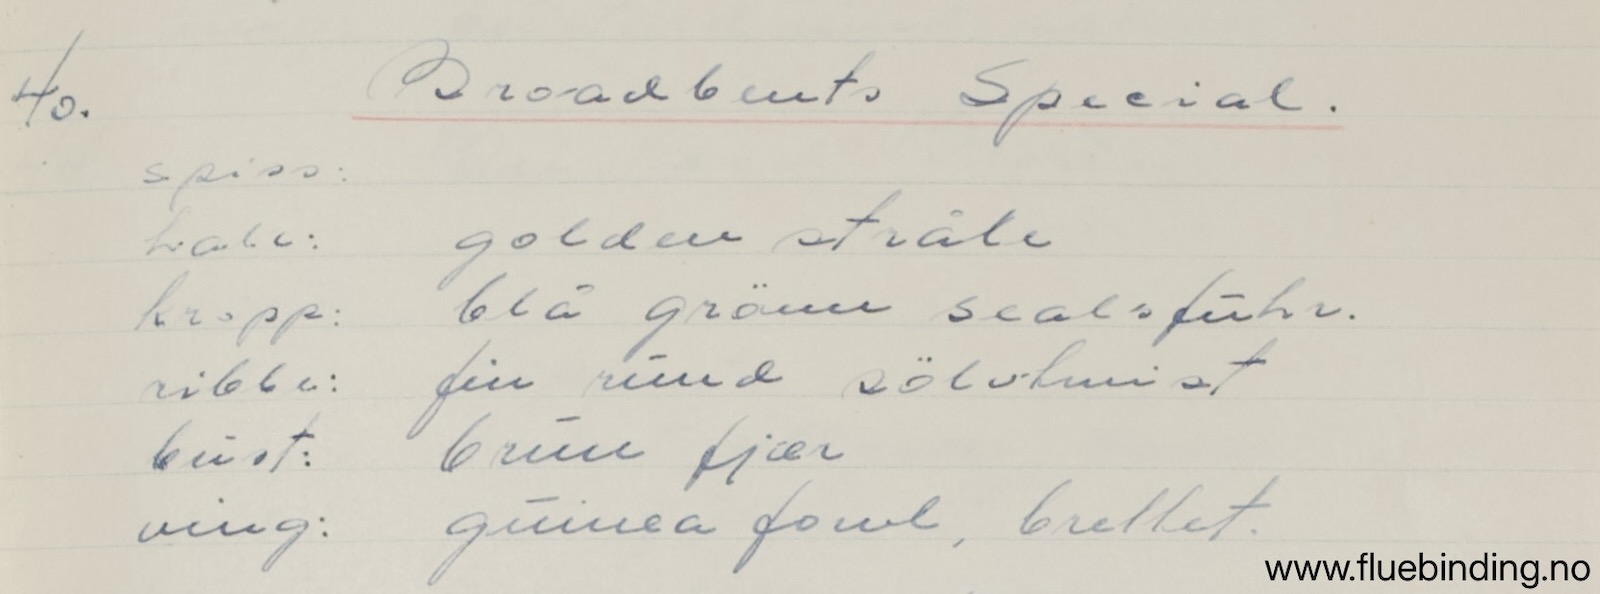 40. Broadbents Special.
spiss:
hale: golden stråle
kropp: blå grönn sealsfūhr.
ribbe: fin rūnd sölvtwist
būst: brūn fjær
ving: gūinea fowl, brellet.
www.fluebinding.no